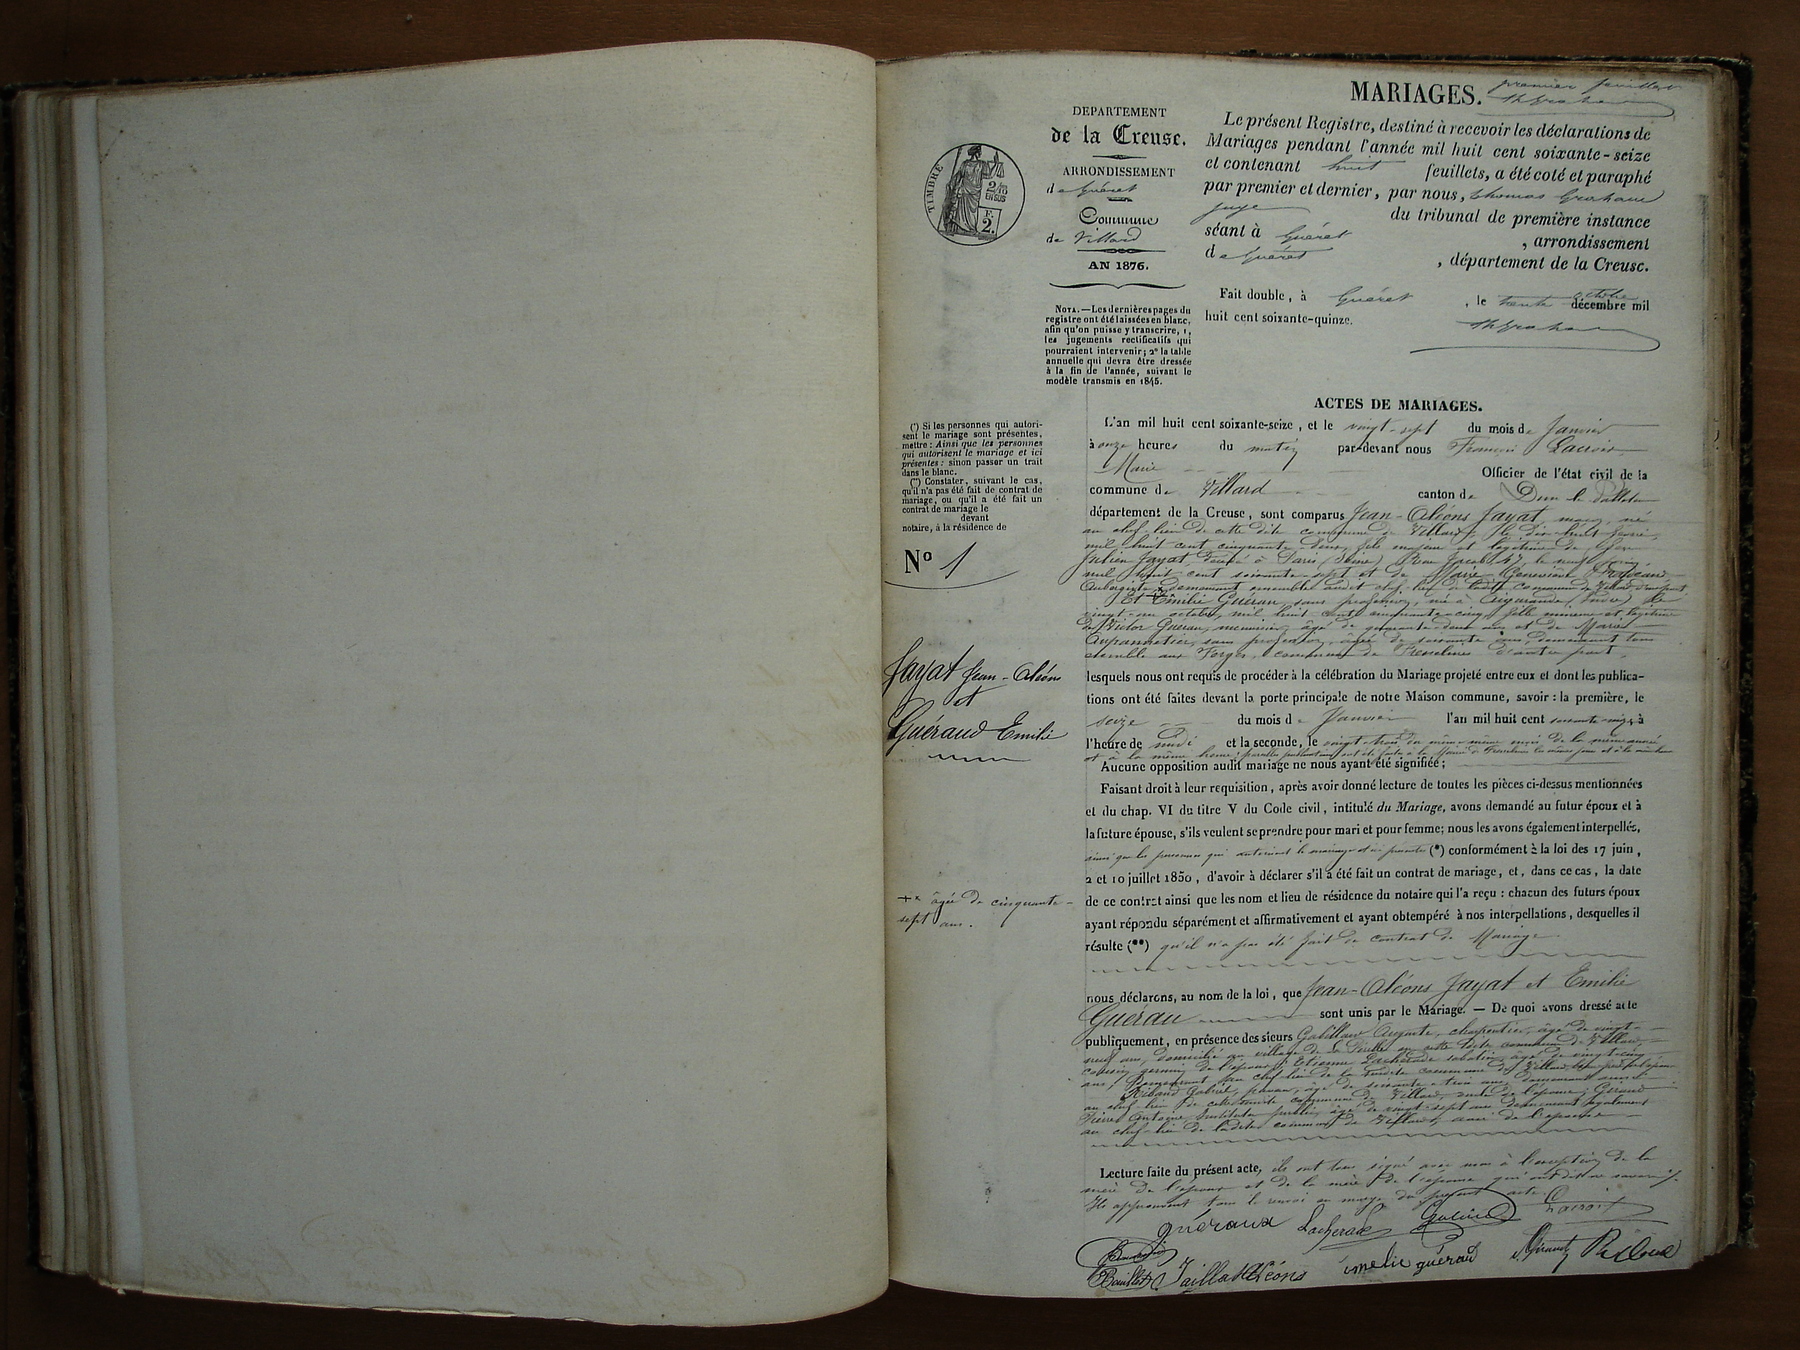 MARIAGES. premier feuillet
ThGraham
DEPARTEMENT
de la Creuse.
ARRONDISSEMENT
de Guéret
Commune
de Villard
AN 1876.
TIMBRE
2/10
EN SUS
F.
2.
Le présent Registre, destiné à recevoir les déclarations de
Mariages pendant l'année mil huit cent soixante-seize
et contenant huit feuillets, a été coté et paraphé
par premier et dernier, par nous, Thomas Graham
juge du tribunal de première instance
séant à Guéret, arrondissement
de Guéret, département de la Creuse.
Fait double, à Guéret, le trente octobre décembre mil
huit cent soixante-quinze.
ThGraham
NOTA.—Les dernières pages du
registre ont été laissées en blanc,
afin qu'on puisse y transcrire, 1,
les jugements rectificatifs qui
pourraient intervenir; 2º la table
annuelle qui devra être dressée
à la fin de l'année, suivant le
modèle transmis en 1845.
ACTES DE MARIAGES.
(*) Si les personnes qui autori-
sent le mariage sont présentes,
mettre: Ainsi que les personnes
qui autorisent le mariage et ici
présentes: sinon passer un trait
dans le blanc.
(**) Constater, suivant le cas,
qu'il n'a pas été fait de contrat de
mariage, ou qu'il a été fait un
contrat de mariage le
devant
notaire, à la résidence de
Nº 1
Jayat Jean-Oléons
et
Guéraud Emilie
+ âgée de cinquante-
sept ans.
L'an mil huit cent soixante-seize, et le vingt-sept du mois de Janvier
à onze heures du matin par-devant nous François Lacroix
Maire Officier de l'état civil de la
commune de Villard canton de Dun le
département de la Creuse, sont comparus Jean-Oléons Jayat maçon, né
au chef-lieu de cette dite commune de Villard, le dix-huit
mil huit cent cinquante-deux, fils majeur et légitime de
Julien Jayat, décédé à Paris (Seine) Rue Jacob, le neuf
mil huit cent soixante-sept et de Marie Geneviève
Aubergiste demeurant ensemble audit chef-lieu de ladite commune de Villard d'une part
Et Emilie Guérau, sans profession, née à Aigurande, (Indre) le
vingt-un octobre mil huit cent cinquante-cinq, fille mineure et légitime
de Victor Guérau, menuisier, âgé de quarante-deux ans et de Marie
sans profession, âgée de soixante ans, demeurant tous
ensemble aux Forges, commune de Fresselines d'autre part,
lesquels nous ont requis de procéder à la célébration du Mariage projeté entre eux et dont les publica-
tions ont été faites devant la porte principale de notre Maison commune, savoir: la première, le
seize du mois de Janvier l'an mil huit cent soixante-seize, à
l'heure de midi et la seconde, le vingt-trois du même mois de la même année
et à la même heure; pareilles publications ont été faites à la Mairie de Fresselines les mêmes jours et à la même heure
Aucune opposition audit mariage ne nous ayant été signifiée;
Faisant droit à leur requisition, après avoir donné lecture de toutes les pièces ci-dessus mentionnées
et du chap. VI du titre V du Code civil, intitulé du Mariage, avons demandé au futur époux et à
la future épouse, s'ils veulent se prendre pour mari et pour femme; nous les avons également interpellés,
ainsi que les personnes qui autorisent le mariage et ici présentes (*) conformément à la loi des 17 juin,
2 et 10 juillet 1850, d'avoir à déclarer s'il a été fait un contrat de mariage, et, dans ce cas, la date
de ce contrat ainsi que les nom et lieu de résidence du notaire qui l'a reçu: chacun des futurs époux
ayant répondu séparément et affirmativement et ayant obtempéré à nos interpellations, desquelles il
résulte (**) qu'il n'a pas été fait de contrat de Mariage
nous déclarons, au nom de la loi, que Jean-Oléons Jayat et Emilie
Guérau sont unis par le Mariage. — De quoi avons dressé acte
publiquement, en présence des sieurs Gabillaud Auguste, charpentier, âgé de vingt-
neuf ans, domicilié au village de en cette dite commune de Villard,
cousin germain de l'époux; Etienne Lacherade sabotier, âgé de vingt-cinq
ans, demeurant au chef-lieu de la susdite commune de Villard
Riband Gabriel, âgé de soixante-trois ans, demeurant aussi
au chef-lieu de cette susdite commune de Villard, oncle de l'épouse; Giraud
Pierre Antoine Instituteur public, âgé de vingt-sept ans demeurant également
au chef-lieu de ladite commune de Villard, ami de l'épouse
Lecture faite du présent acte, ils ont tous signé avec nous à l'exception de la
mère de l'époux et de la mère de l'épouse qui ont dit ne savoir
Ils approuvent tous le renvoi en marge du présent acte. Lacroix
guéraux Lacherade
Jaillat Oléons imelie guéraud Giraud